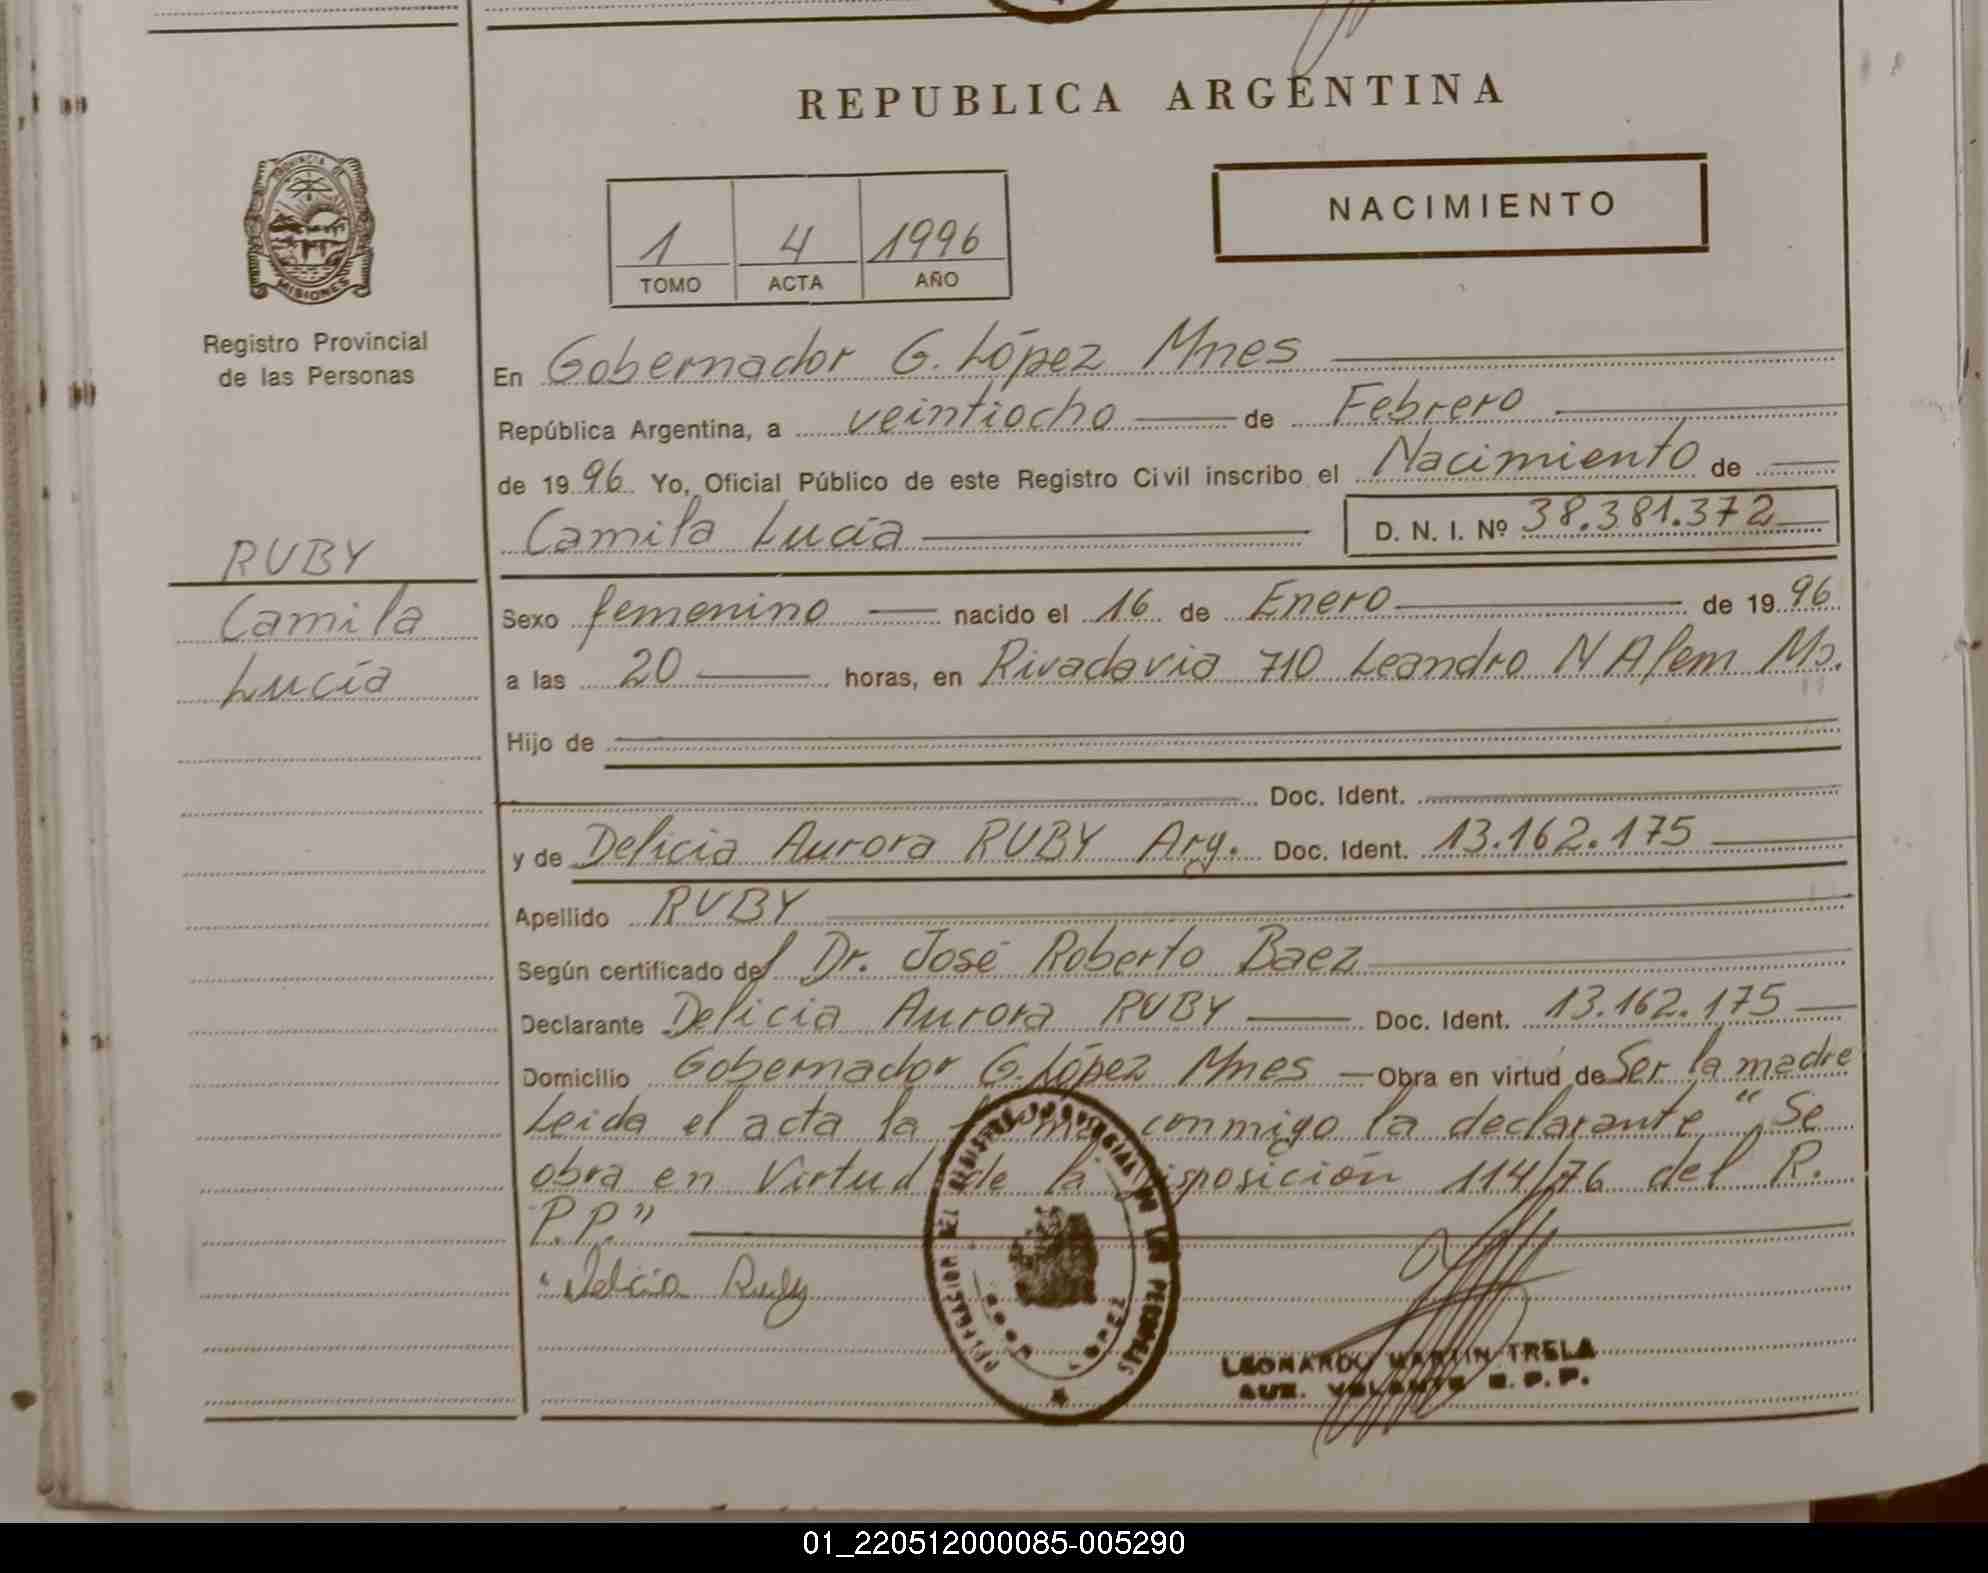 REPUBLICA ARGENTINA
PROVINCIA DE
MISIONES
Registro Provincial
de las Personas
1 4 1996
TOMO ACTA AÑO
NACIMIENTO
En Gobernador G. López Mnes
República Argentina, a veintiocho de Febrero
de 1996 Yo, Oficial Público de este Registro Civil inscribo el Nacimiento de
Camila Lucía D. N. I. Nº 38.381.372
RUBY
Camila
Lucía
Sexo femenino nacido el 16 de Enero de 1996
a las 20 horas, en Rivadavia 710 Leandro N Alem Ms.
Hijo de
Doc. Ident.
y de Delicia Aurora RUBY Arg. Doc. Ident. 13.162.175
Apellido RUBY
Según certificado del Dr. José Roberto Baez
Declarante Delicia Aurora RUBY Doc. Ident. 13.162.175
Domicilio Gobernador G. López Mnes Obra en virtud de Ser la madre
Leida el acta la conmigo la declarante "Se
obra en Virtud de la Disposición 114/76 del R.
P.P."
Delicia Ruby
DELEGACION DEL REGISTRO PROVINCIAL DE LAS PERSONAS
LOPEZ
LEONARDO MARTIN TRELA
AUX. VOLANTE R.P.P.
01_220512000085-005290